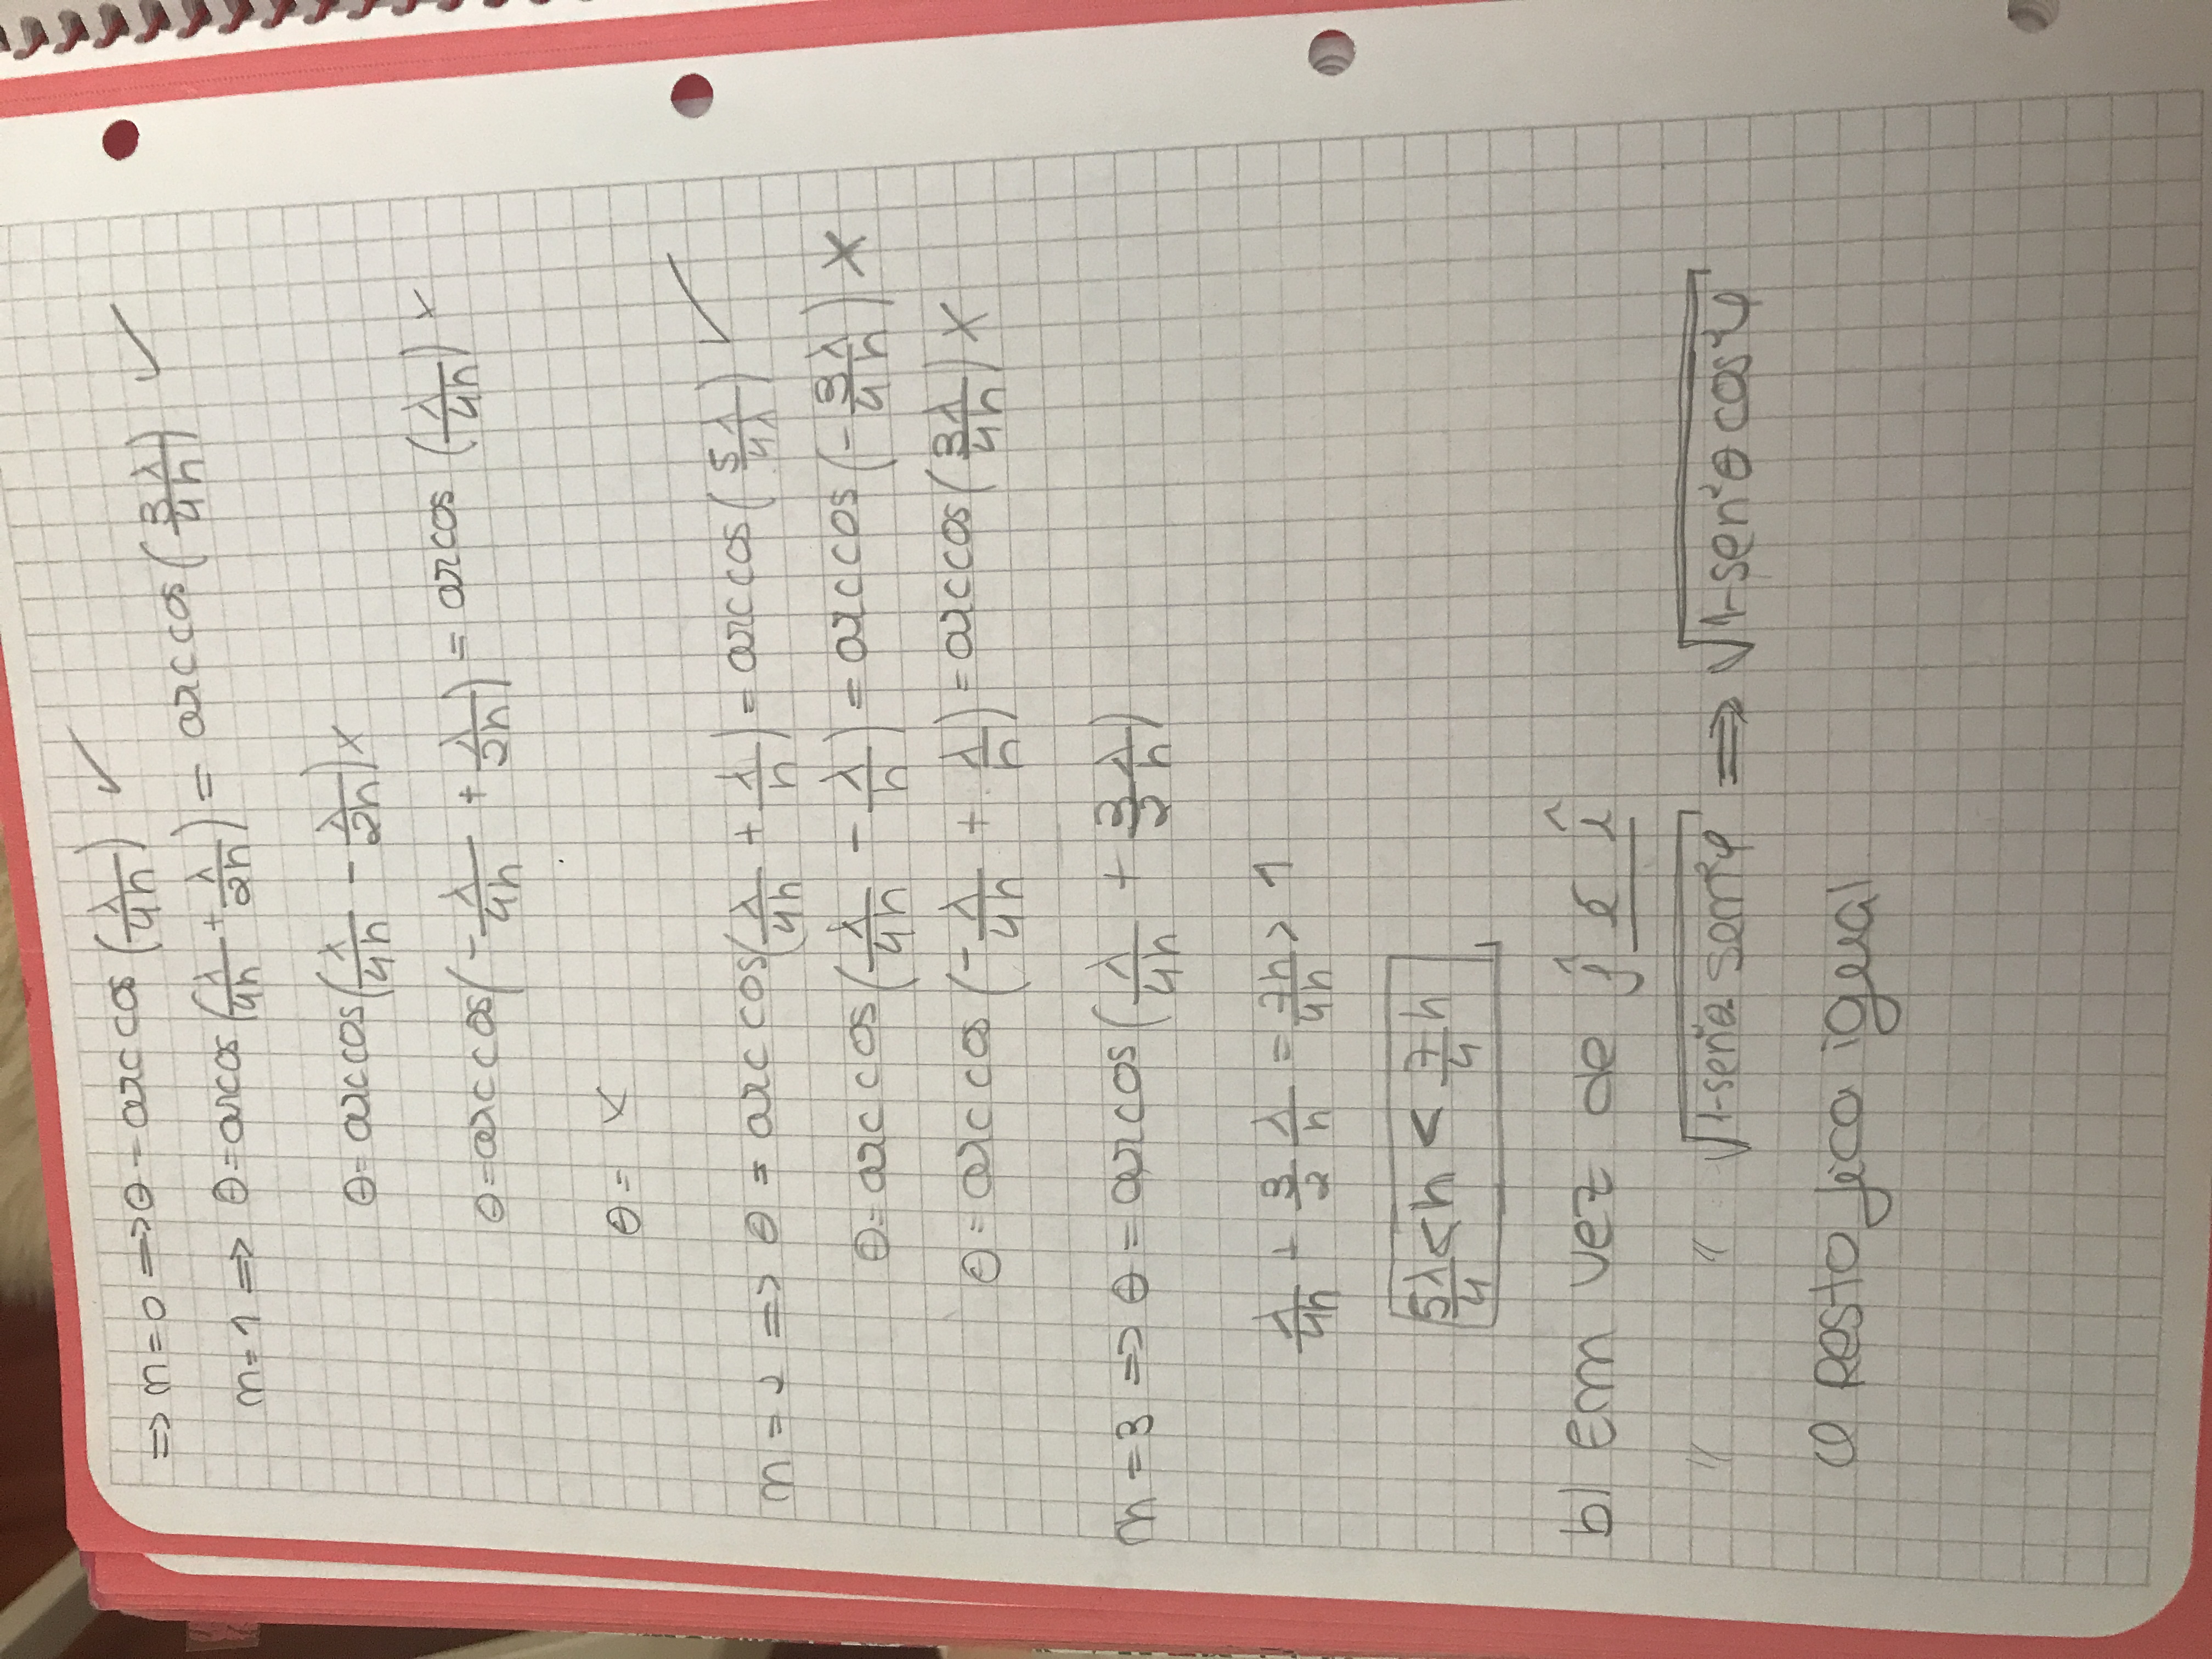 => n=0 => θ = arccos (λ/4h) ✓
n=1 => θ = arcos (λ/4h + λ/2h) = arccos (3λ/4h) ✓
θ = arccos (λ/4h - λ/2h) x
θ = arccos (-λ/4h + λ/2h) = arcos (λ/4h) x
θ = x
n=2 => θ = arccos (λ/4h + λ/h) = arccos (5λ/4λ) ✓
θ = arccos (λ/4h - λ/h) = arccos (-3λ/4h) X
θ = arccos (-λ/4h + λ/h) = arccos (3λ/4h) X
n=3 => θ = arcos (λ/4h + 3/2 λ/h)
λ/4h + 3/2 λ/h = 7h/4h > 1
5λ/4 < h < 7/4 h
b) Em vez de ĵ é î
" " √(1-sen²θ sen²φ) => √(1-sen²θ cos²φ)
O Resto fica igual